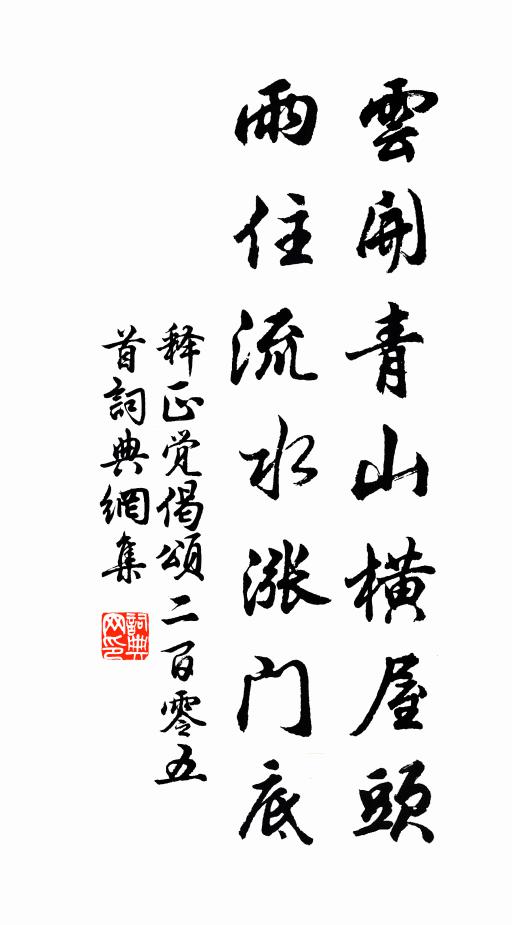 雲開青山橫屋頭
雨住流水漲门底
释正觉偈頌二百零五
首詞典網集
詞典
网印